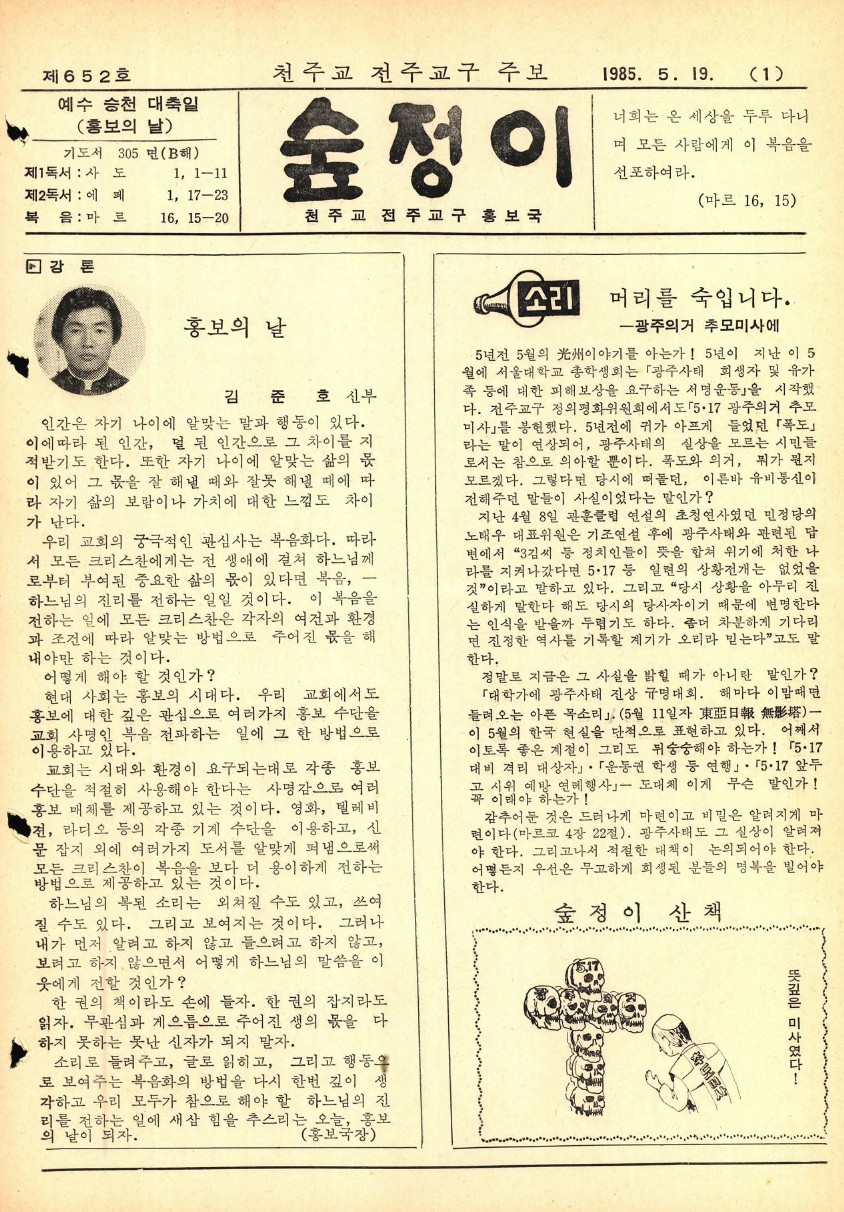 제652호
천주교 전주교구 주보
1985. 5. 19.
(1)
예수 승천 대축일
(홍보의 날)
기도서 305 면(B해)
제1독서 : 사 도 1, 1—11
제2독서 : 에 페 1, 17—23
복 음 : 마 르 16, 15—20
숲정이
천주교 전주교구 홍보국
너희는 온 세상을 두루 다니
며 모든 사람에게 이 복음을
선포하여라.
(마르 16, 15)
강 론
홍보의 날
김 준 호 신부
인간은 자기 나이에 알맞는 말과 행동이 있다.
이에따라 된 인간, 덜 된 인간으로 그 차이를 지
적받기도 한다. 또한 자기 나이에 알맞는 삶의 몫
이 있어 그 몫을 잘 해낼 때와 잘못 해낼 때에 따
라 자기 삶의 보람이나 가치에 대한 느낌도 차이
가 난다.
우리 교회의 궁극적인 관심사는 복음화다. 따라
서 모든 크리스찬에게는 전 생애에 걸쳐 하느님께
로부터 부여된 중요한 삶의 몫이 있다면 복음, —
하느님의 진리를 전하는 일일 것이다. 이 복음을
전하는 일에 모든 크리스찬은 각자의 여건과 환경
과 조건에 따라 알맞는 방법으로 주어진 몫을 해
내야만 하는 것이다.
어떻게 해야 할 것인가?
현대 사회는 홍보의 시대다. 우리 교회에서도
홍보에 대한 깊은 관심으로 여러가지 홍보 수단을
교회 사명인 복음 전파하는 일에 그 한 방법으로
이용하고 있다.
교회는 시대와 환경이 요구되는대로 각종 홍보
수단을 적절히 사용해야 한다는 사명감으로 여러
홍보 매체를 제공하고 있는 것이다. 영화, 텔레비
젼, 라디오 등의 각종 기계 수단을 이용하고, 신
문 잡지 외에 여러가지 도서를 알맞게 펴냄으로써
모든 크리스찬이 복음을 보다 더 용이하게 전하는
방법으로 제공하고 있는 것이다.
하느님의 복된 소리는 외쳐질 수도 있고, 쓰여
질 수도 있다. 그리고 보여지는 것이다. 그러나
내가 먼저 알려고 하지 않고 들으려고 하지 않고,
보려고 하지 않으면서 어떻게 하느님의 말씀을 이
웃에게 전할 것인가?
한 권의 책이라도 손에 들자. 한 권의 잡지라도
읽자. 무관심과 게으름으로 주어진 생의 몫을 다
하지 못하는 못난 신자가 되지 말자.
소리로 들려주고, 글로 읽히고, 그리고 행동으
로 보여주는 복음화의 방법을 다시 한번 깊이 생
각하고 우리 모두가 참으로 해야 할 하느님의 진
리를 전하는 일에 새삼 힘을 추스리는 오늘, 홍보
의 날이 되자. (홍보국장)
소리
머리를 숙입니다.
—광주의거 추모미사에
5년전 5월의 光州이야기를 아는가! 5년이 지난 이 5
월에 서울대학교 총학생회는 「광주사태 희생자 및 유가
족 등에 대한 피해보상을 요구하는 서명운동」을 시작했
다. 전주교구 정의평화위원회에서도「5·17 광주의거 추모
미사」를 봉헌했다. 5년전에 귀가 아프게 들었던 「폭도」
라는 말이 연상되어, 광주사태의 실상을 모르는 시민들
로서는 참으로 의아할 뿐이다. 폭도와 의거, 뭐가 뭔지
모르겠다. 그렇다면 당시에 떠돌던, 이른바 유비통신이
전해주던 말들이 사실이었다는 말인가?
지난 4월 8일 관훈클럽 연설의 초청연사였던 민정당의
노태우 대표위원은 기조연설 후에 광주사태와 관련된 답
변에서 “3김씨 등 정치인들이 뜻을 합쳐 위기에 처한 나
라를 지켜나갔다면 5·17 등 일련의 상황전개는 없었을
것”이라고 말하고 있다. 그리고 “당시 상황을 아무리 진
실하게 말한다 해도 당시의 당사자이기 때문에 변명한다
는 인식을 받을까 두렵기도 하다. 좀더 차분하게 기다리
면 진정한 역사를 기록할 계기가 오리라 믿는다”고도 말
한다.
정말로 지금은 그 사실을 밝힐 때가 아니란 말인가?
「대학가에 광주사태 진상 규명대회. 해마다 이맘때면
들려오는 아픈 목소리」. (5월 11일자 東亞日報 無影塔)—
이 5월의 한국 현실을 단적으로 표현하고 있다. 어째서
이토록 좋은 계절이 그리도 뒤숭숭해야 하는가! 「5·17
대비 격리 대상자」·「운동권 학생 등 연행」·「5·17 앞두
고 시위 예방 연례행사」— 도대체 이게 무슨 말인가!
꼭 이래야 하는가!
감추어둔 것은 드러나게 마련이고 비밀은 알려지게 마
련이다(마르코 4장 22절). 광주사태도 그 실상이 알려져
야 한다. 그리고나서 적절한 대책이 논의되어야 한다.
어떻든지 우선은 무고하게 희생된 분들의 명복을 빌어야
한다.
숲정이 산책
5.17
뜻깊은 미사였다!